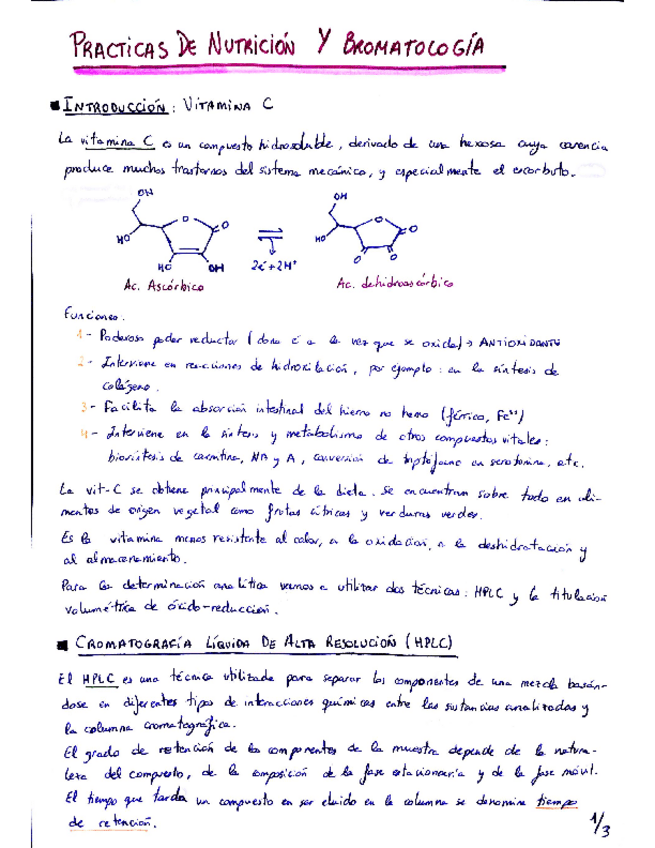 PRACTICAS DE NUTRICIÓN Y BROMATOLOGÍA
INTRODUCCIÓN: VITAMINA C
La vitamina C es un compuesto hidrosoluble, derivado de una hexosa cuya carencia
produce muchos trastornos del sistema mecánico, y especialmente el escorbuto.
OH OH
O O O O
HO HO
HO OH 2e⁻+2H⁺ O O
Ac. Ascórbico Ac. dehidroascórbico
Funciones.
1- Poderoso poder reductor (dona é a la vez que se oxida) → ANTIOXIDANTE
2- Interviene en reacciones de hidroxilación, por ejemplo: en la síntesis de
colágeno.
3- Facilita la absorción intestinal del hierro no hemo (férrico, Fe⁺⁺)
4- Interviene en la síntesis y metabolismo de otros compuestos vitales:
biosíntesis de carnitina, NA y A, conversión de triptófano en serotonina, etc.
La vit-C se obtiene principalmente de la dieta. Se encuentran sobre todo en ali-
mentos de origen vegetal como frutas cítricas y verduras verdes.
Es la vitamina menos resistente al calor, a la oxidación, a la deshidratación y
al almacenamiento.
Para la determinación analítica vamos a utilizar dos técnicas: HPLC y la titulación
volumétrica de óxido-reducción.
CROMATOGRAFÍA LÍQUIDA DE ALTA RESOLUCIÓN (HPLC)
El HPLC es una técnica utilizada para separar los componentes de una mezcla basán-
dose en diferentes tipos de interacciones químicas entre las sustancias analizadas y
la columna cromatográfica.
El grado de retención de los componentes de la muestra depende de la natura-
leza del compuesto, de la composición de la fase estacionaria y de la fase móvil.
El tiempo que tarda un compuesto en ser eluido en la columna se denomina tiempo
de retención.
1/3